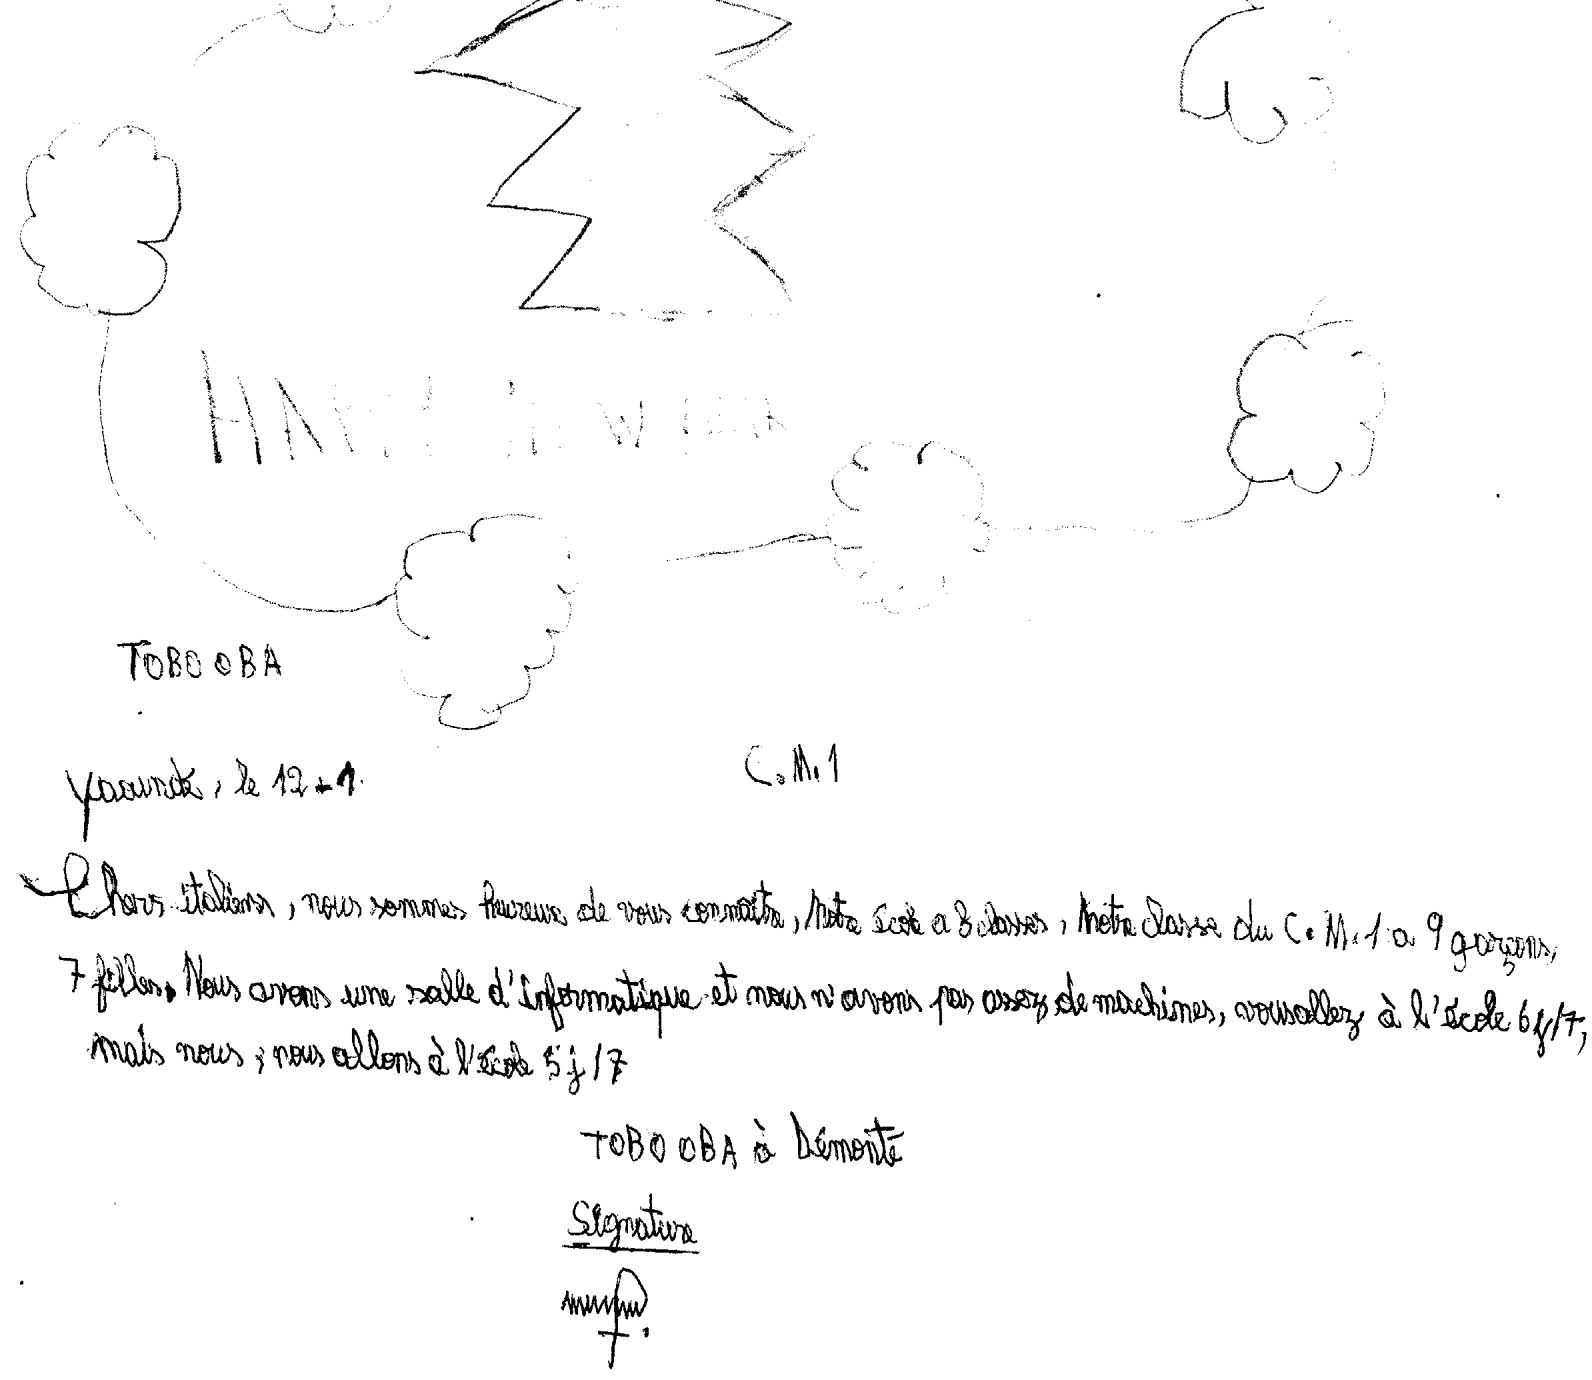 HAPPY NEW YEAR
TOBO OBA
Yaoundé, le 12-1.
C.M.1
Chers italiens, nous sommes heureux de vous connaître, Notre école a 8 classes, Notre classe du C.M.1 a 9 garçons,
7 filles. Nous avons une salle d'informatique et nous n'avons pas assez de machines, vous allez à l'école 6j/7,
mais nous, nous allons à l'école 5j/7
TOBO OBA à Démonté
Signature